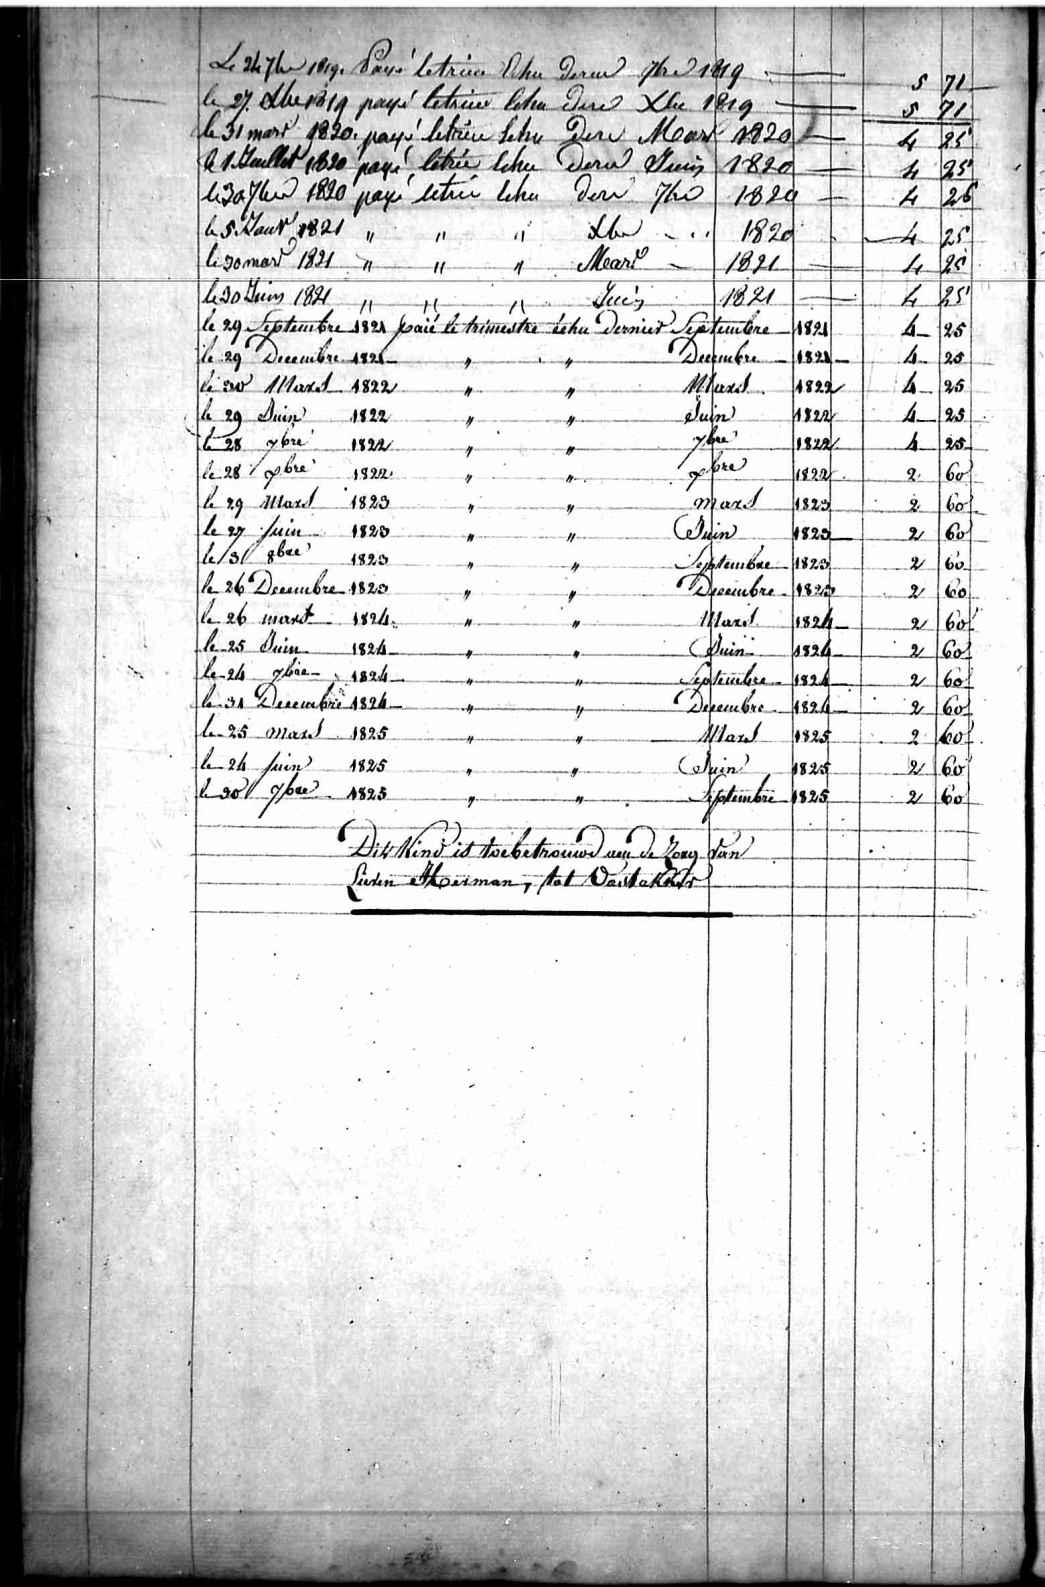 Le 24 7bre 1819. Payé letrim Echu dernr 7bre 1819 5 71
le 27. Xbre 1819 payé letrim Echu dern Xbre 1819 5 71
le 31 mars 1820. payé letrim Echu dern Mars 1820 4 25
le 1. Juillet 1820 payé letrim Echu dern Juin 1820 4 25
le 30 7bre 1820 payé letrim Echu dern 7bre 1820 4 25
le 5 Janvr 1821 " " " Xbre 1820 4 25
le 30 mars 1821 " " " Mars 1821 4 25
le 30 Juin 1821 " " " Juin 1821 4 25
le 29 Septembre 1821 paié le trimestre échu dernier Septembre 1821 4 25
le 29 Decembre 1821 " " Decembre 1821 4 25
le 30 Mars 1822 " " Mars 1822 4 25
le 29 Juin 1822 " " Juin 1822 4 25
le 28 7bre 1822 " " 7bre 1822 4 25
le 28 1822 " " 1822 2 60
le 29 Mars 1823 " " mars 1823 2 60
le 27 Juin 1823 " " Juin 1823 2 60
le 3 8bre 1823 " " Septembre 1823 2 60
le 26 Decembre 1823 " " Decembre 1823 2 60
le 26 mars 1824 " " Mars 1824 2 60
le 25 Juin 1824 " " Juin 1824 2 60
le 24 7bre 1824 " " Septembre 1824 2 60
le 31 Decembre 1824 " " Decembre 1824 2 60
le 25 mars 1825 " " Mars 1825 2 60
le 24 Juin 1825 " " Juin 1825 2 60
le 30 7bre 1825 " " Septembre 1825 2 60
Dit Kind is toebetrouwd aen de zorg van
Lieven Herman, tot Oostakker